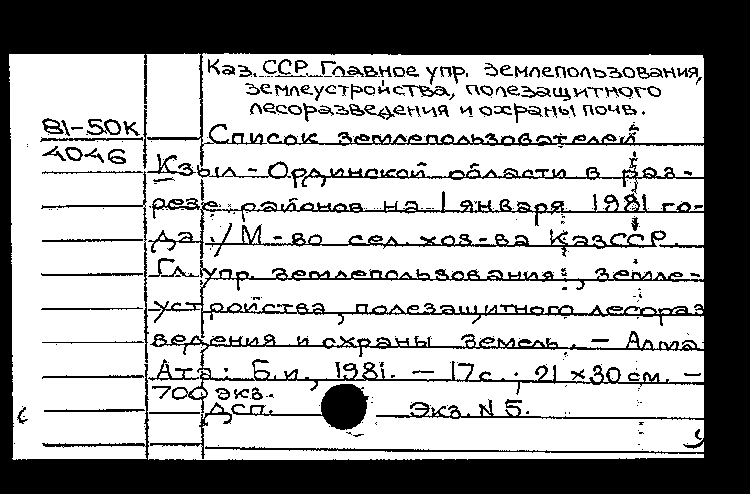 Каз. ССР. Главное упр. землепользования,
землеустройства, полезащитного
лесоразведения и охраны почв.
81-50К
4046
Список землепользователей
Кзыл-Ординской области в раз-
резе районов на 1 января 1981 го-
да. / М-во сел. хоз-ва КазССР.
Гл. упр. землепользования, земле-
устройства, полезащитного лесораз
ведения и охраны земель. - Алма
Ата: Б.и., 1981. - 17 с.; 21 x 30 см. -
700 экз.
ДСП. Экз. N 5.